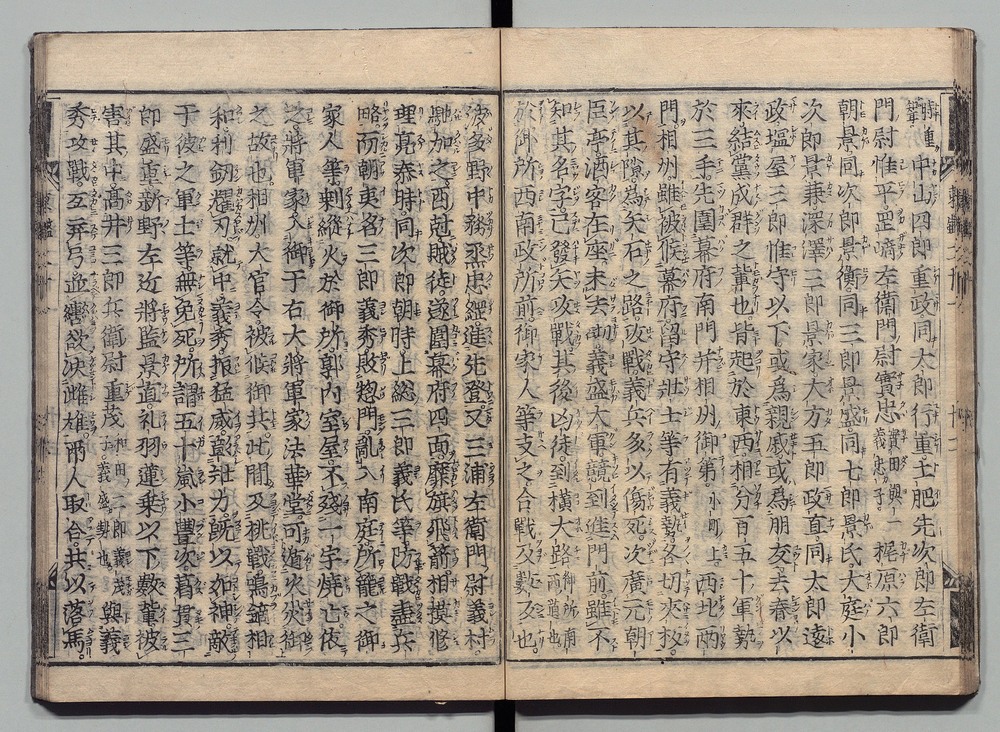 中山四郎重政同太郎行重土肥先次郎左衛
門尉惟平岡崎左衛門尉實忠真田與一義忠子梶原六郎
朝景同次郎景衡同三郎景盛同七郎景氏大庭小
次郎景兼深澤三郎景家大方五郎政直同太郎遠
政塩屋三郎惟守以下或為親戚或為朋友去春以
來結黨成群之輩也皆起於東西相分百五十軍勢
於三手先圍幕府南門并相州御第小町上西北兩
門相州雖被候幕府留守壯士等有義勢各切夾板
以其隙為矢石之路攻戰義兵多以傷死次廣元朝
臣亭酒客在座未去砌義盛大軍競到進門前雖不
知其名字已發矢攻戰其後凶徒到橫大路御所南西道也
於御所西南政所前御家人等支之合戰及數反也
波多野中務丞忠經進先登又三浦左衛門尉義村
馳加之酉尅賊徒遂圍幕府四面靡旗飛箭相模修
理亮泰時同次郎朝時上総三郎義氏等防戰盡兵
略而朝夷名三郎義秀敗惣門亂入南庭所籠之御
家人等剰縱火於御所郭內室屋不殘一宇燒亡依
之將軍家入御于右大將軍家法華堂可遁火災御
之故也相州大官令被候御共此間及挑戰鳴鏑相
和利劒耀刃就中義秀振猛威彰壯力既以如神敵
于彼之軍士等無免死所謂五十嵐小豐次葛貫三
郎盛重新野左近將監景直礼羽蓮乗以下數輩被
害其中高井三郎兵衛尉重茂和田二郎義茂子義盛甥也與義
秀攻戰互弃弓並轡欲決雌雄兩人取合共以落馬